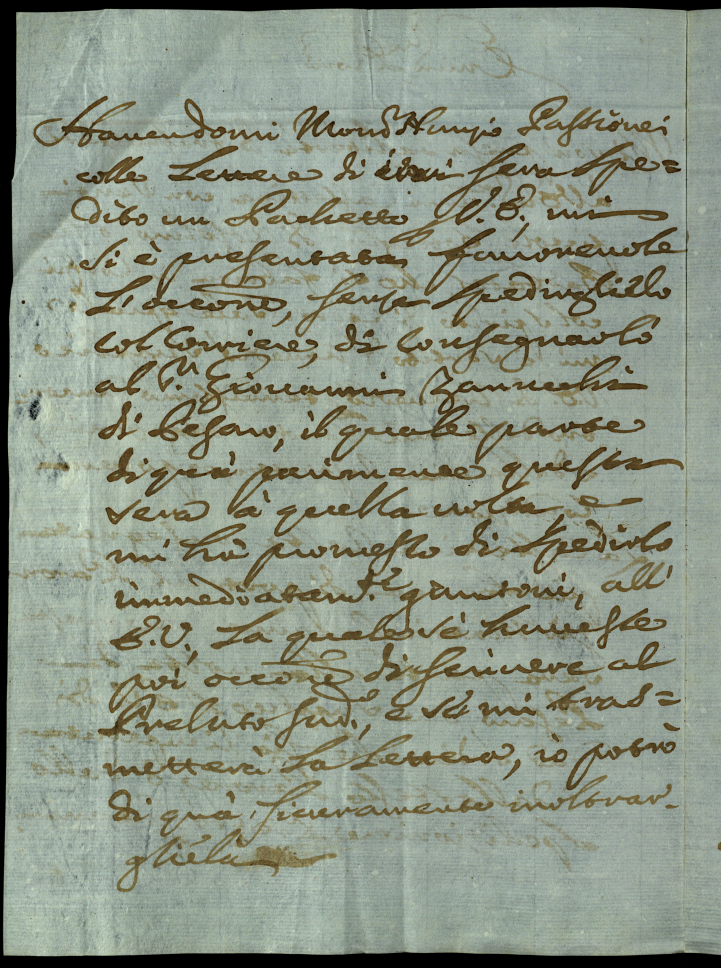 Havendomi Mons.r Nunzio Passionei
colle Lettere di ieri sera spe=
dito un Pachetto V. E., mi
si è presentata favorevole
L'occone, senza spedirglielo
col Corriere, di consegnarlo
al S.r Giovanni Zanucchi
di Pesaro, il quale parte
di quà parimente questa
sera à quella volta e
mi hà promesso di spedirlo
immediatam.te giuntovi, all'
E.V. La quale sè havesse
poi occone di scrivere al
Prelato sud.o, e sè mi tras=
metterà La Lettera, io potrò
di quà sicuramente inoltrar-
gliela